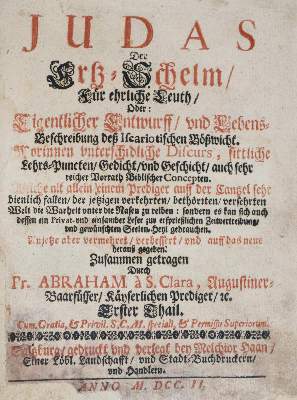 JUDAS
Der
Ertz-Schelm/
Für ehrliche Leuth/
Oder:
Eigentlicher Entwurff/ und Lebens-
Beschreibung deß Iscariotischen Bößwicht.
Worinnen unterschidliche Discurs, sittliche
Lehrs-Puncten/ Gedicht/ und Geschicht/ auch sehr
reicher Vorrath Biblischer Concepten.
Welche nit allein einem Prediger auff der Cantzel sehr
dienlich fallen/ der jetzigen verkehrten/ bethörten/ versehrten
Welt die Warheit unter die Nasen zu reiben: sondern es kan sich auch
dessen ein Privat- und einsamber Leser zur ersprießlichen Zeitvertreibung/
und gewünschten Seelen-Heyl gebrauchen.
Anjetzo aber vermehret/ verbessert/ und auff das neue
herauß gegeben.
Zusammen getragen
Durch
Pr. ABRAHAM à S. Clara, Augustiner-
Baarfüsser/ Käyserlichen Prediger/ ꝛc.
Erster Thail.
Cum Gratia, & Privil. S. C. M. speciali, & Permissu Superiorum.
Saltzburg/ gedruckt und verlegt bey Melchior Haan/
Einer Löbl. Landschafft/ und Stadt-Buchdruckern/
und Handlern.
ANNO M. DCC. II.